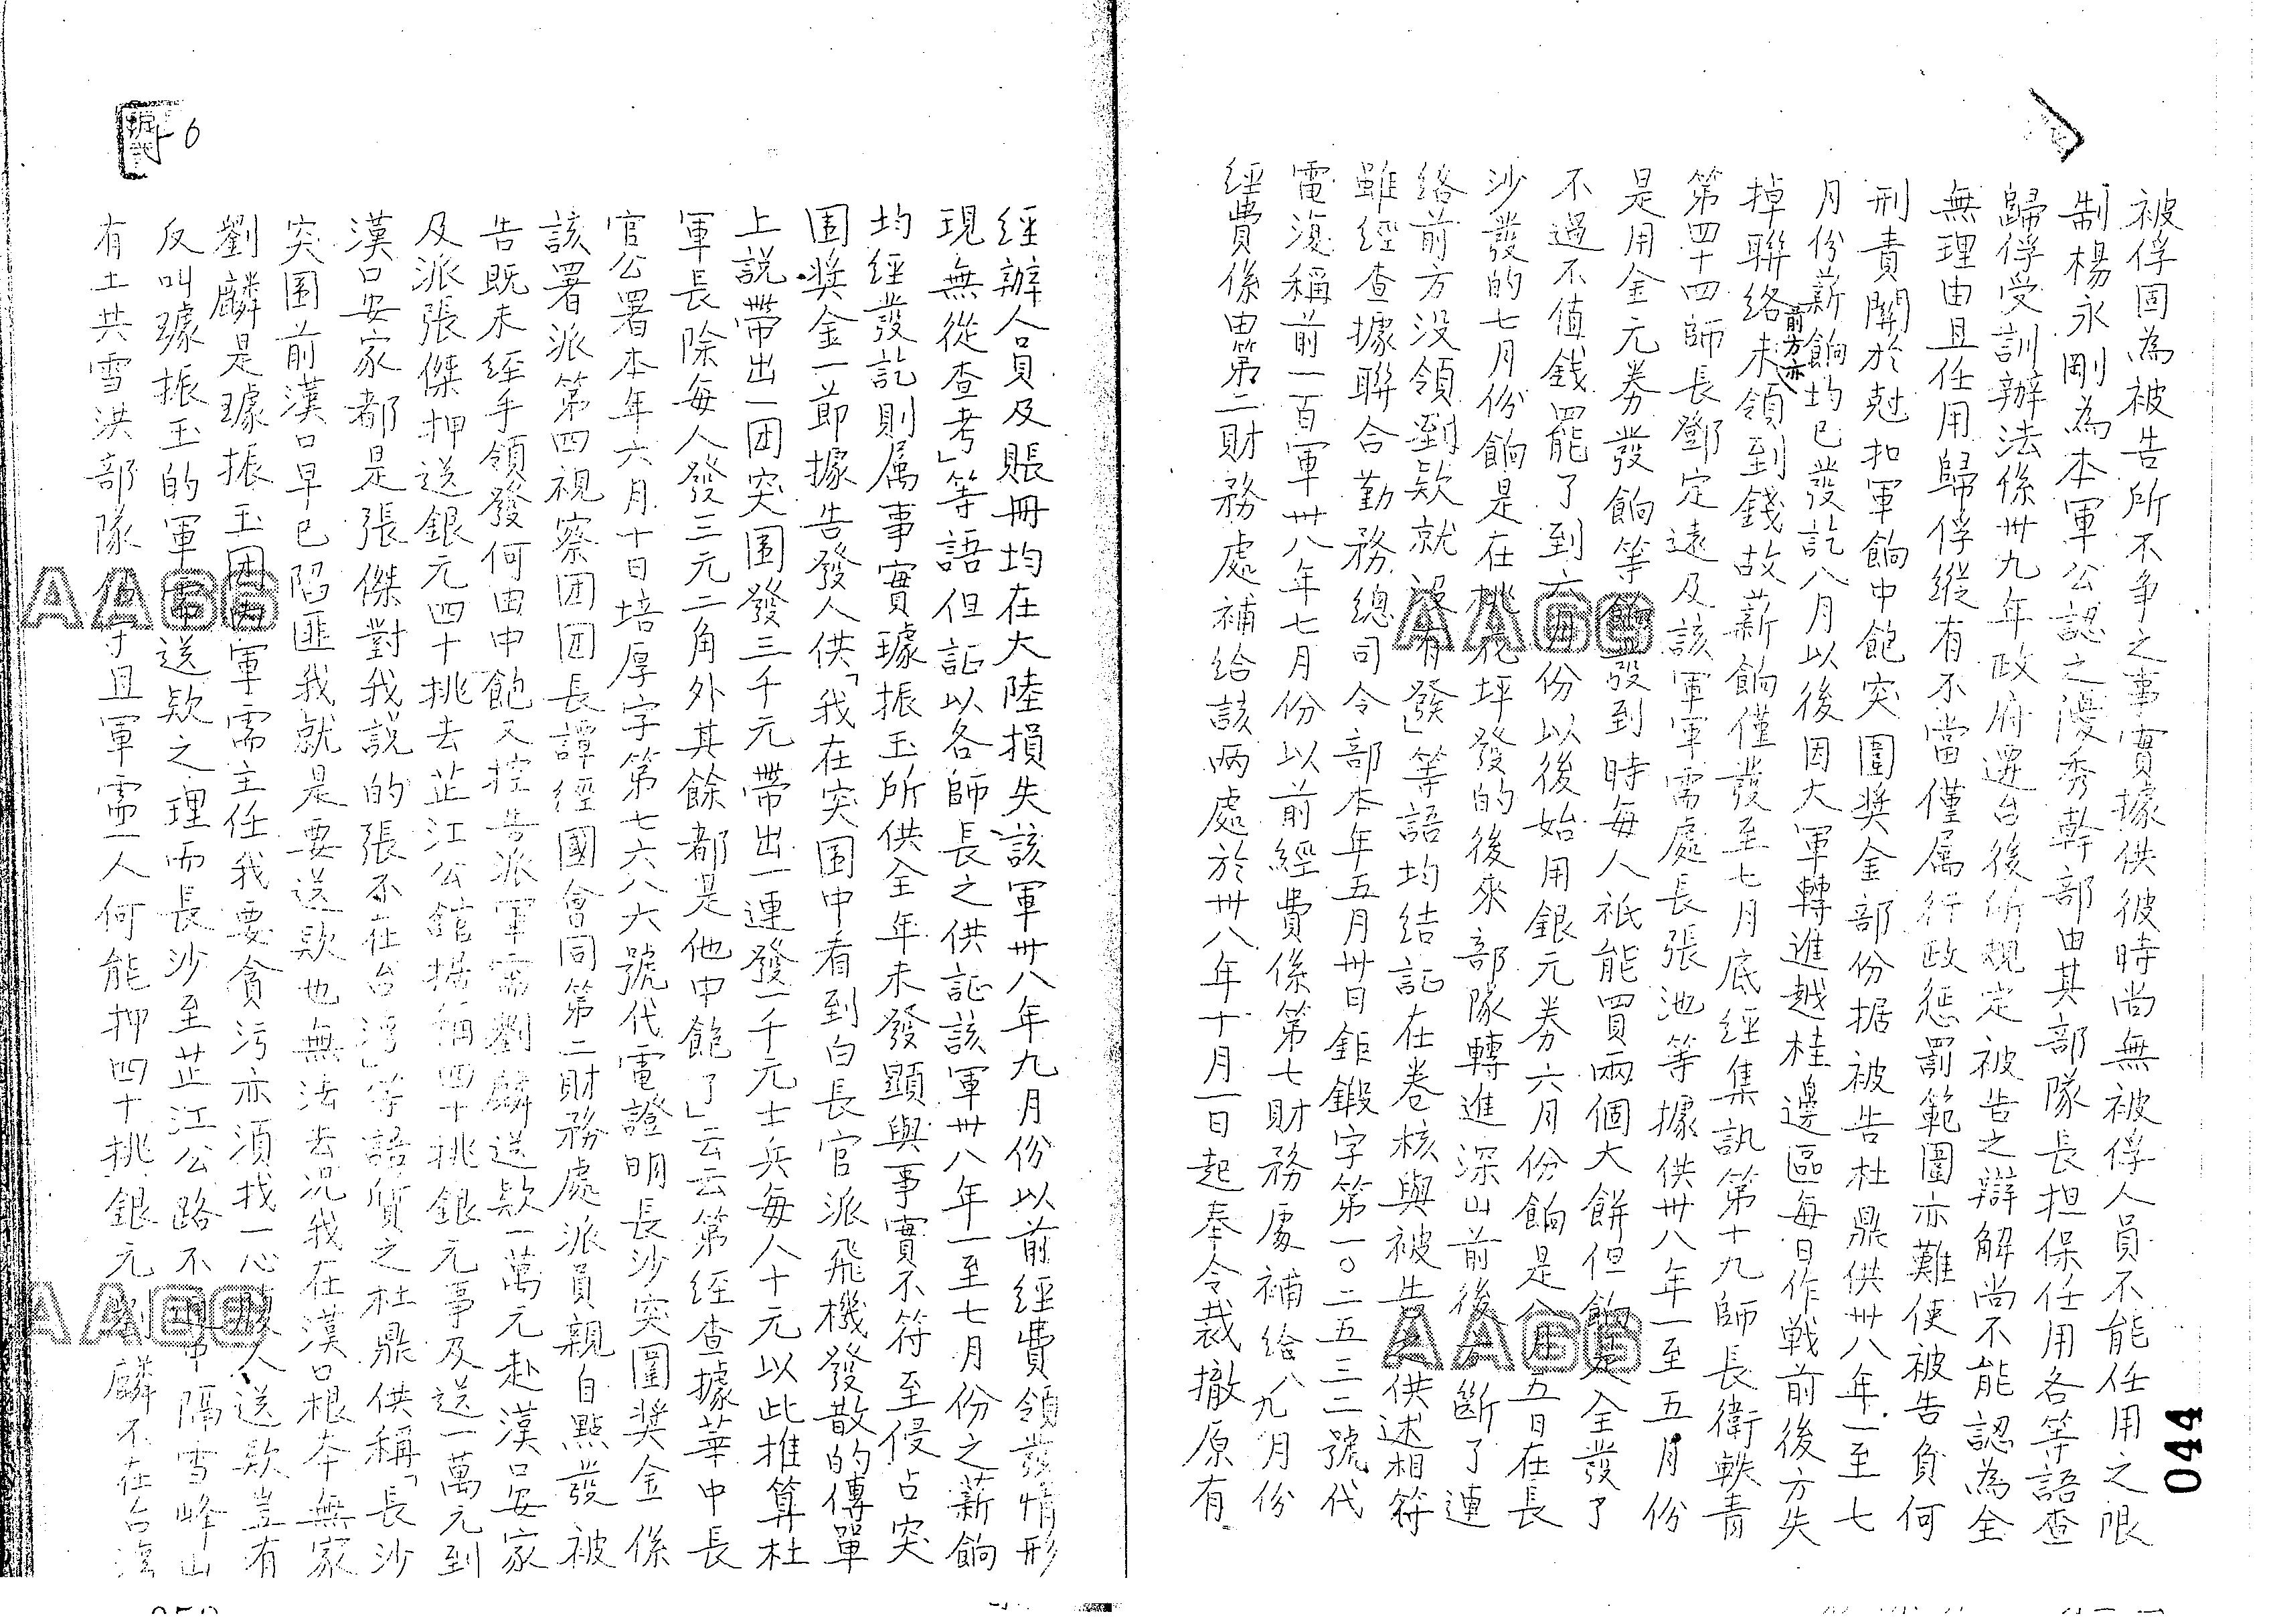 被俘固為被告所不爭之事實據供彼時尚無被俘人員不能任用之限
制楊永剛為本軍公認之優秀幹部由其部隊長担保任用各等語查
歸俘受訓辦法係卅九年政府遷台後所規定被告之辯解尚不能認為全
無理由且任用歸俘縱有不當僅屬行政懲罰範圍亦難使被告負何
刑責關於尅扣軍餉中飽突圍獎金部份据被告杜鼎供卅八年一至七
月份薪餉均已發訖八月以後因大軍轉進越桂邊區每日作戰前後方失
掉聯絡前方亦未領到錢故薪餉僅發至七月底經集訊第十九師長衛軼青
第四十四師長鄧定遠及該軍軍需處長張池等據供卅八年一至五月份
是用金元券發餉等餉發到時每人祇能買兩個大餅但餉是全發了
不過不值錢罷了到六月份以後始用銀元券六月份餉是八月五日在長
沙發的七月份餉是在桃花坪發的後來部隊轉進深山前後方斷了連
絡前方没領到欵就没有發」等語均结証在卷核與被告杜鼎供述相符
雖經查據聯合勤務總司令部本年五月卅日鉅鍛字第一〇二五三二號代
電復稱前一百軍卅八年七月份以前經費係第七財務處補給八九月份
經費係由第二財務處補給該兩處於卅八年十月一日起奉令裁撤原有
044
經辦人員及賬冊均在大陸損失該軍卅八年九月份以前經費領發情形
現無從查考」等語但証以各師長之供証該軍卅八年一至七月份之薪餉
均經發訖則属事實璩振玉所供全年未發顯與事實不符至侵占突
围獎金一節據告發人供「我在突围中看到白長官派飛機發散的傳單
上説帶出一团突围發三千元帶出一連發一千元士兵每人十元以此推算杜
軍長除每人發三元二角外其餘都是他中飽了」云云第經查據華中長
官公署本年六月十日培厚字第七六八六號代電證明長沙突圍獎金係
該署派第四視察团团長譚經國會同第二財務處派員親自點發被
告既未経手領發何由中飽又控告派軍需劉麟送欵一萬元赴漢口安家
及派張傑押送銀元四十挑去芷江公館据稱四十挑銀元事及送一萬元到
漢口安家都是張傑對我説的張不在台灣」等語質之杜鼎供稱「長沙
突围前漢口早已陷匪我就是要送欵也無法去况我在漢口根本無家
劉麟是璩振玉团的軍需主任我要貪污亦須找一心腹人送欵豈有
反叫璩振玉的軍需送欵之理而長沙至芷江公路不通中隔雪峰山
有土共雪洪部隊佔守且軍需一人何能押四十挑銀元劉麟不在台灣
6